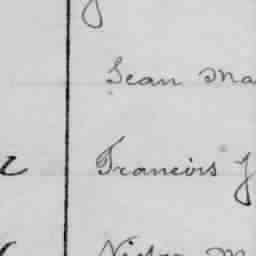 Jean Ma
Francois J
Victor M